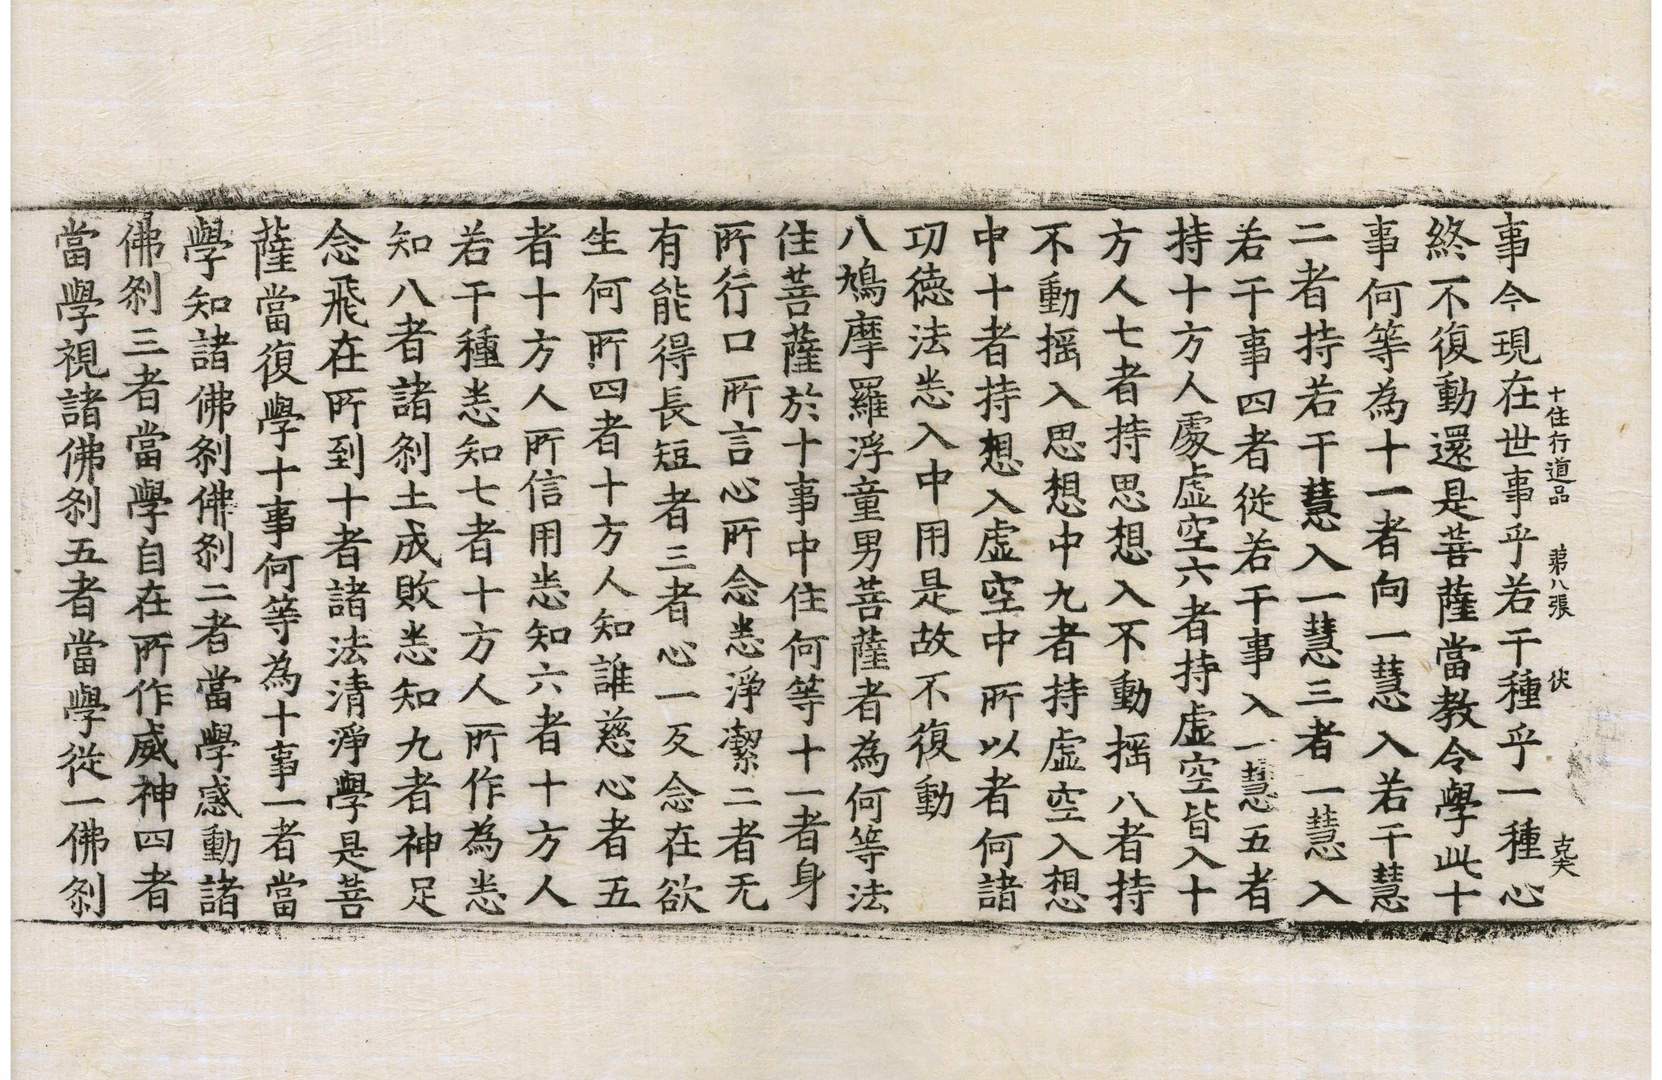 十住行道品 第八張 伏 克夫
事今現在世事乎若干種乎一種心
終不復動還是菩薩當教令學此十
事何等為十一者向一慧入若干慧
二者持若干慧入一慧三者一慧入
若干事四者從若干事入一慧五者
持十方人處虛空六者持虛空皆入十
方人七者持思想入不動揺八者持
不動揺入思想中九者持虛空入想
中十者持想入虛空中所以者何諸
功德法悉入中用是故不復動
八鳩摩羅浮童男菩薩者為何等法
住菩薩於十事中住何等十一者身
所行口所言心所念悉淨潔二者无
有能得長短者三者心一反念在欲
生何所四者十方人知誰慈心者五
者十方人所信用悉知六者十方人
若干種悉知七者十方人所作為悉
知八者諸刹土成敗悉知九者神足
念飛在所到十者諸法清淨學是菩
薩當復學十事何等為十事一者當
學知諸佛刹佛刹二者當學感動諸
佛刹三者當學自在所作威神四者
當學視諸佛刹五者當學從一佛刹